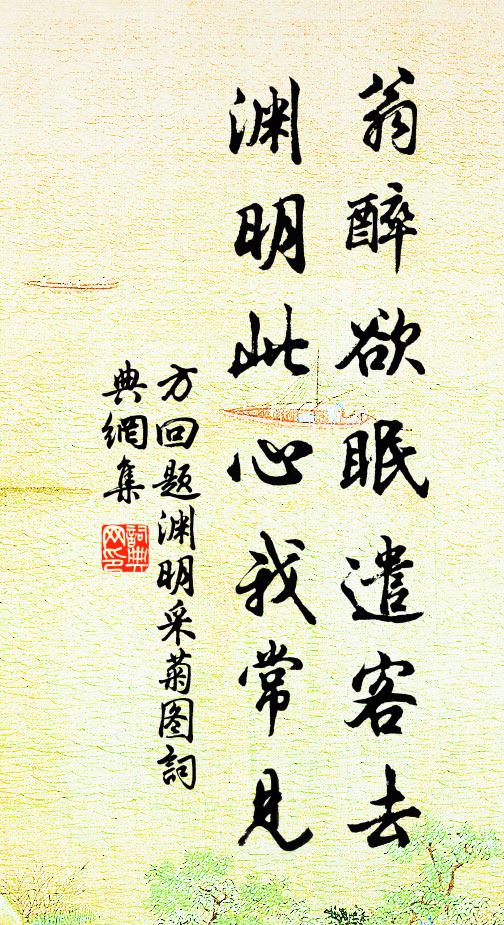 翁醉欲眠遣客去
渊明此心我常見
方回题渊明采菊图詞
典網集
詞典
网印